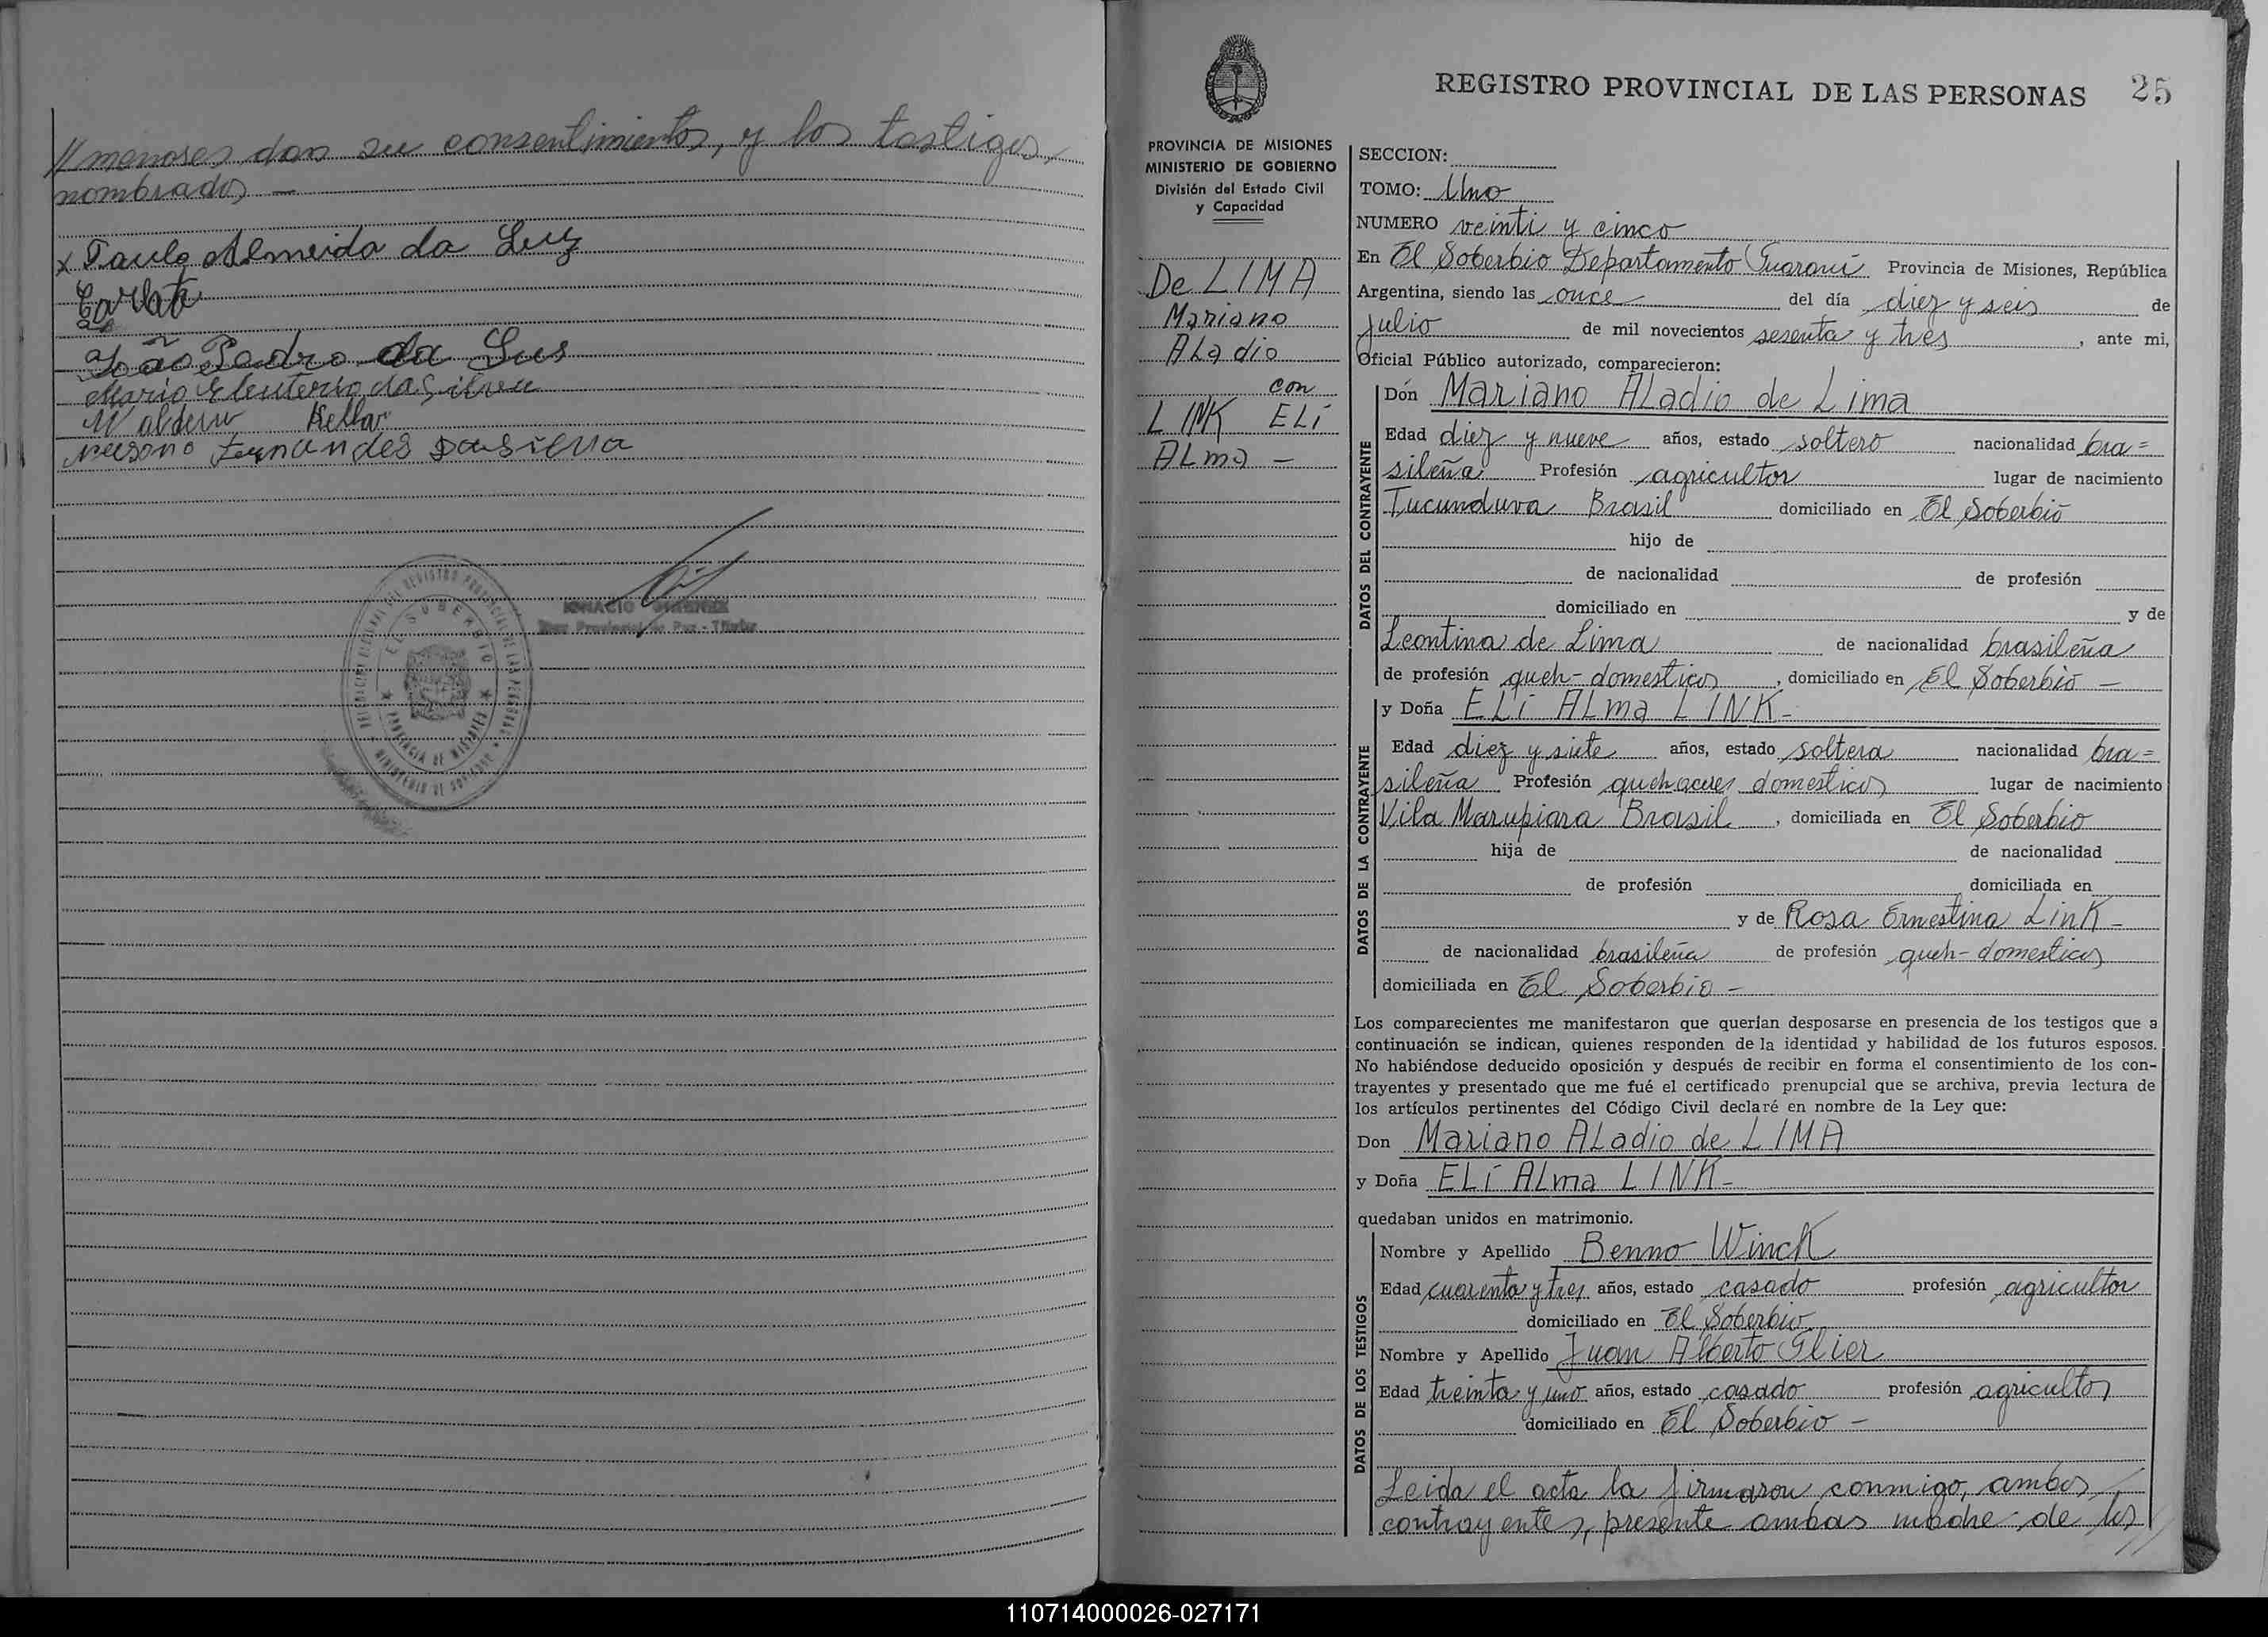 // menores dan su consentimientos, y los testigos
nombrados —
x Paulo Almeida da Luz
João Pedro da Lus
Mario Eleuterio da Silva
Fernandes Dasilva
IGNACIO GIMENEZ
Juez Provincial de Paz - Titular
EL SOBERBIO
PROVINCIA DE MISIONES
REGISTRO PROVINCIAL DE LAS PERSONAS 25
PROVINCIA DE MISIONES
MINISTERIO DE GOBIERNO
División del Estado Civil
y Capacidad
De LIMA
Mariano
ALadio
con
LINK ELí
ALma —
SECCION:
TOMO: Uno
NUMERO veinti y cinco
En El Soberbio Departamento Guaraní Provincia de Misiones, República
Argentina, siendo las once del día diez y seis de
Julio de mil novecientos sesenta y tres, ante mi,
Oficial Público autorizado, comparecieron:
DATOS DEL CONTRAYENTE
Dón Mariano ALadio de Lima
Edad diez y nueve años, estado soltero nacionalidad bra=
sileña Profesión agricultor lugar de nacimiento
Tucunduva Brasil domiciliado en El Soberbio
hijo de
de nacionalidad de profesión
domiciliado en y de
Leontina de Lima de nacionalidad brasileña
de profesión queh-domesticos, domiciliado en El Soberbio —
DATOS DE LA CONTRAYENTE
y Doña ELí ALma LINK-
Edad diez y siete años, estado soltera nacionalidad bra=
sileña Profesión quehaceres domesticos lugar de nacimiento
Vila Marupiara Brasil, domiciliada en El Soberbio
hija de de nacionalidad
de profesión domiciliada en
y de Rosa Ernestina Link-
de nacionalidad brasileña de profesión queh-domesticos
domiciliada en El Soberbio -
Los comparecientes me manifestaron que querían desposarse en presencia de los testigos que a
continuación se indican, quienes responden de la identidad y habilidad de los futuros esposos.
No habiéndose deducido oposición y después de recibir en forma el consentimiento de los con-
trayentes y presentado que me fué el certificado prenupcial que se archiva, previa lectura de
los artículos pertinentes del Código Civil declaré en nombre de la Ley que:
Don Mariano ALadio de LIMA
y Doña ELí ALma LINK-
quedaban unidos en matrimonio.
DATOS DE LOS TESTIGOS
Nombre y Apellido Benno Winck
Edad cuarenta y tres años, estado casado profesión agricultor
domiciliado en El Soberbio
Nombre y Apellido Juan Alberto Glier
Edad treinta y uno años, estado casado profesión agricultor
domiciliado en El Soberbio —
Leida el acta la firmaron conmigo, ambos
contrayentes, presente ambas madre de los //
110714000026-027171